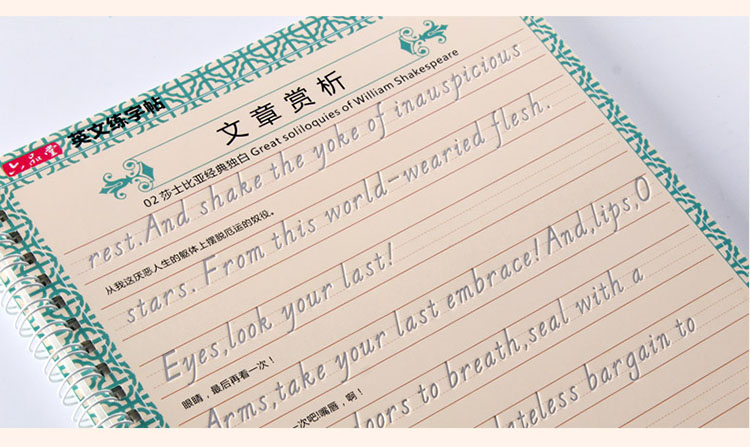 六品堂 英文练字帖
文章赏析
02 莎士比亚经典独白 Great soliloquies of William Shakespeare
rest.And shake the yoke of inauspicious
stars. From this world-wearied flesh.
从我这厌恶人生的躯体上摆脱厄运的奴役。
Eyes,look your last!
眼睛，最后再看一次！
Arms,take your last embrace! And,lips,O
一次吧!嘴唇，啊！
doors to breath,seal with a
dateless bargain to